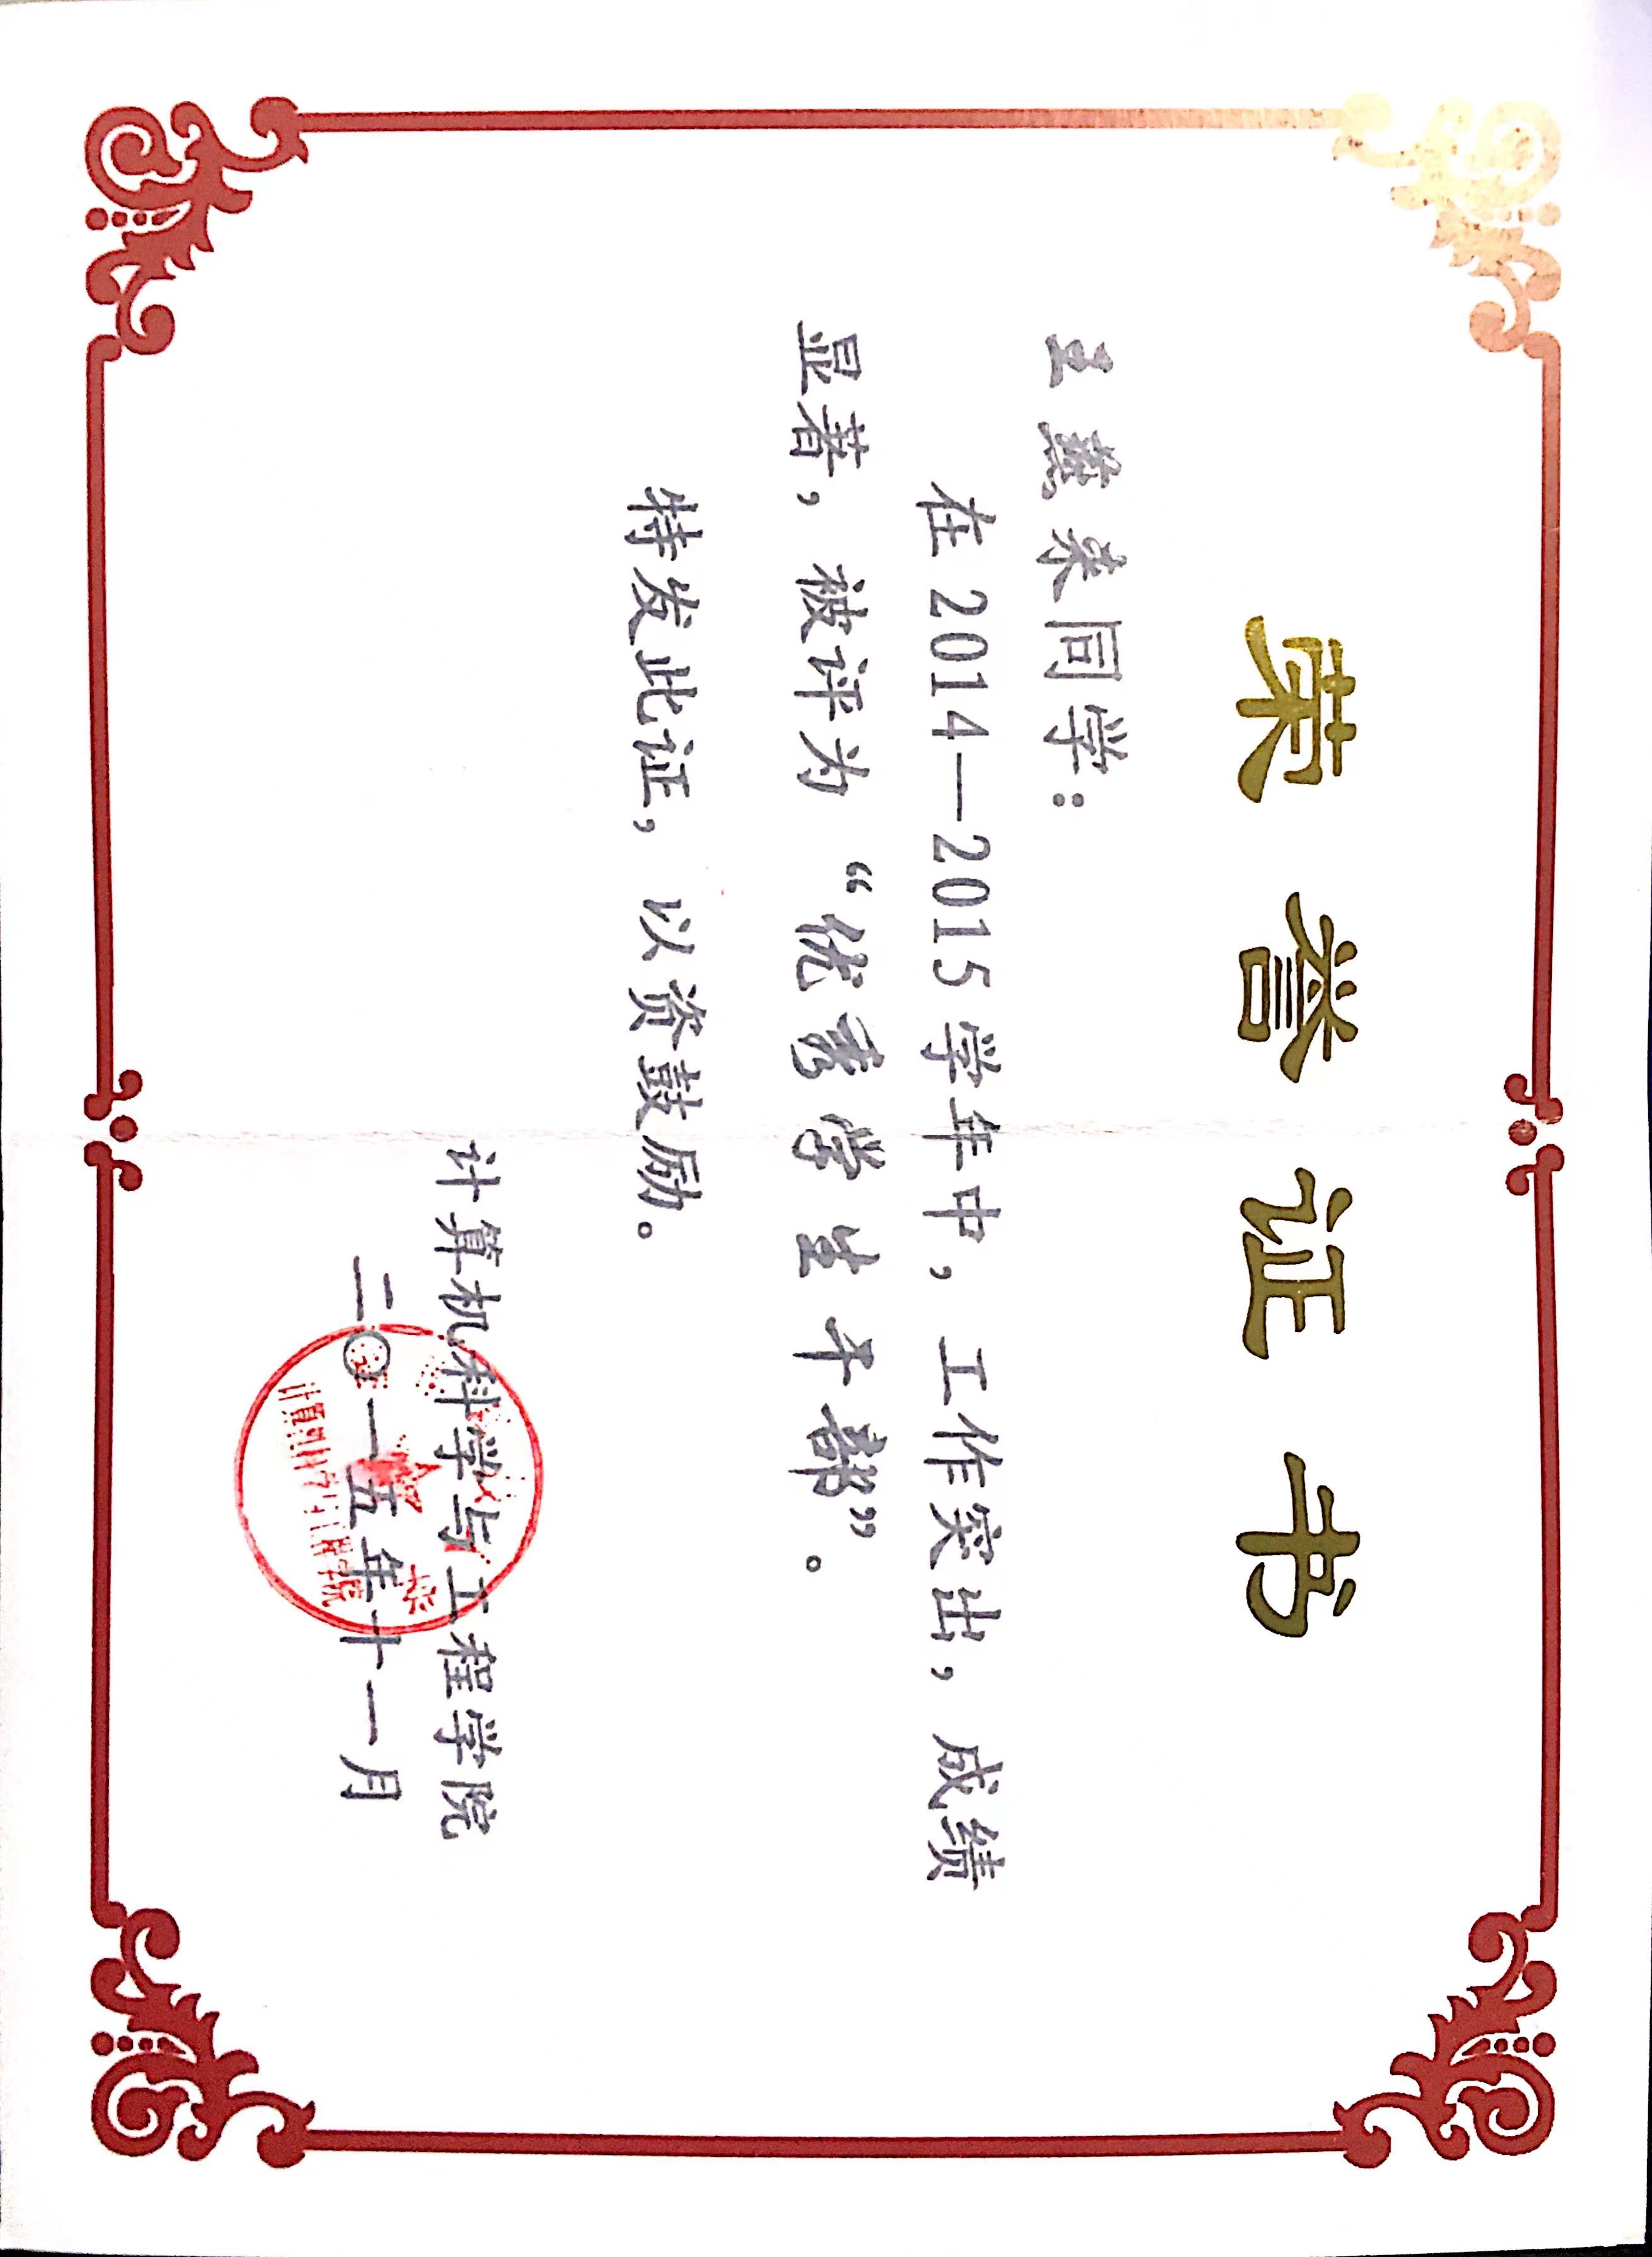 荣誉证书
同学：
在2014—2015学年中，工作突出，成绩
显著，被评为“优秀学生干部”。
特发此证，以资鼓励。
计算机科学与工程学院
二〇一五年十一月
计算机科学与工程学院